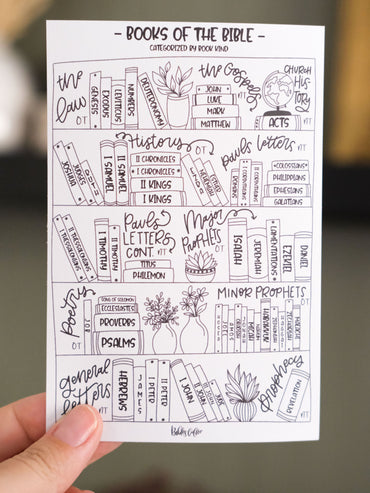 - BOOKS OF THE BIBLE -
CATEGORIZED BY BOOK KIND
the Law
OT
GENESIS
EXODUS
LEVITICUS
NUMBERS
DEUTERONOMY
the Gospels
NT
JOHN
LUKE
MARK
MATTHEW
CHURCH HISTORY
NT
ACTS
History
OT
JOSHUA
JUDGES
RUTH
I SAMUEL
II SAMUEL
II CHRONICLES
I CHRONICLES
II KINGS
I KINGS
EZRA
Pauls letters
NT
ROMANS
I CORINTHIANS
II CORINTHIANS
COLOSSIANS
PHILIPPIANS
EPHESIANS
GALATIANS
I THESSALONIANS
II THESSALONIANS
I TIMOTHY
II TIMOTHY
Pauls LETTERS CONT.
NT
TITUS
PHILEMON
Major Prophets
OT
ISAIAH
JEREMIAH
LAMENTATIONS
EZEKIEL
DANIEL
Poetry
OT
SONG OF SOLOMON
ECCLESIASTES
PROVERBS
PSALMS
JOB
MINOR PROPHETS
OT
HOSEA
JOEL
AMOS
OBADIAH
JONAH
MICAH
NAHUM
HABAKKUK
ZEPHANIAH
HAGGAI
ZECHARIAH
MALACHI
general letters
NT
HEBREWS
JAMES
I PETER
II PETER
I JOHN
II JOHN
III JOHN
JUDE
Prophecy
NT
REVELATION